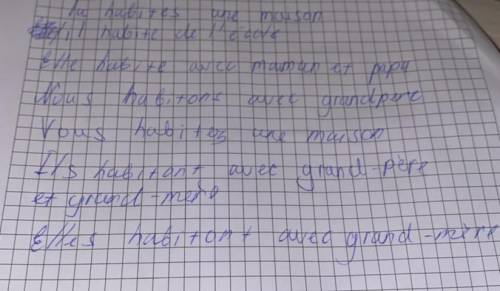 Tu habites une maison
il habite de l'école
Elle habite avec maman et papa
Nous habitons avec grandpere
Vous habitez une maison
Ils habitont avec grand-père
et grand-mère
Elles habitont avec grand-mère